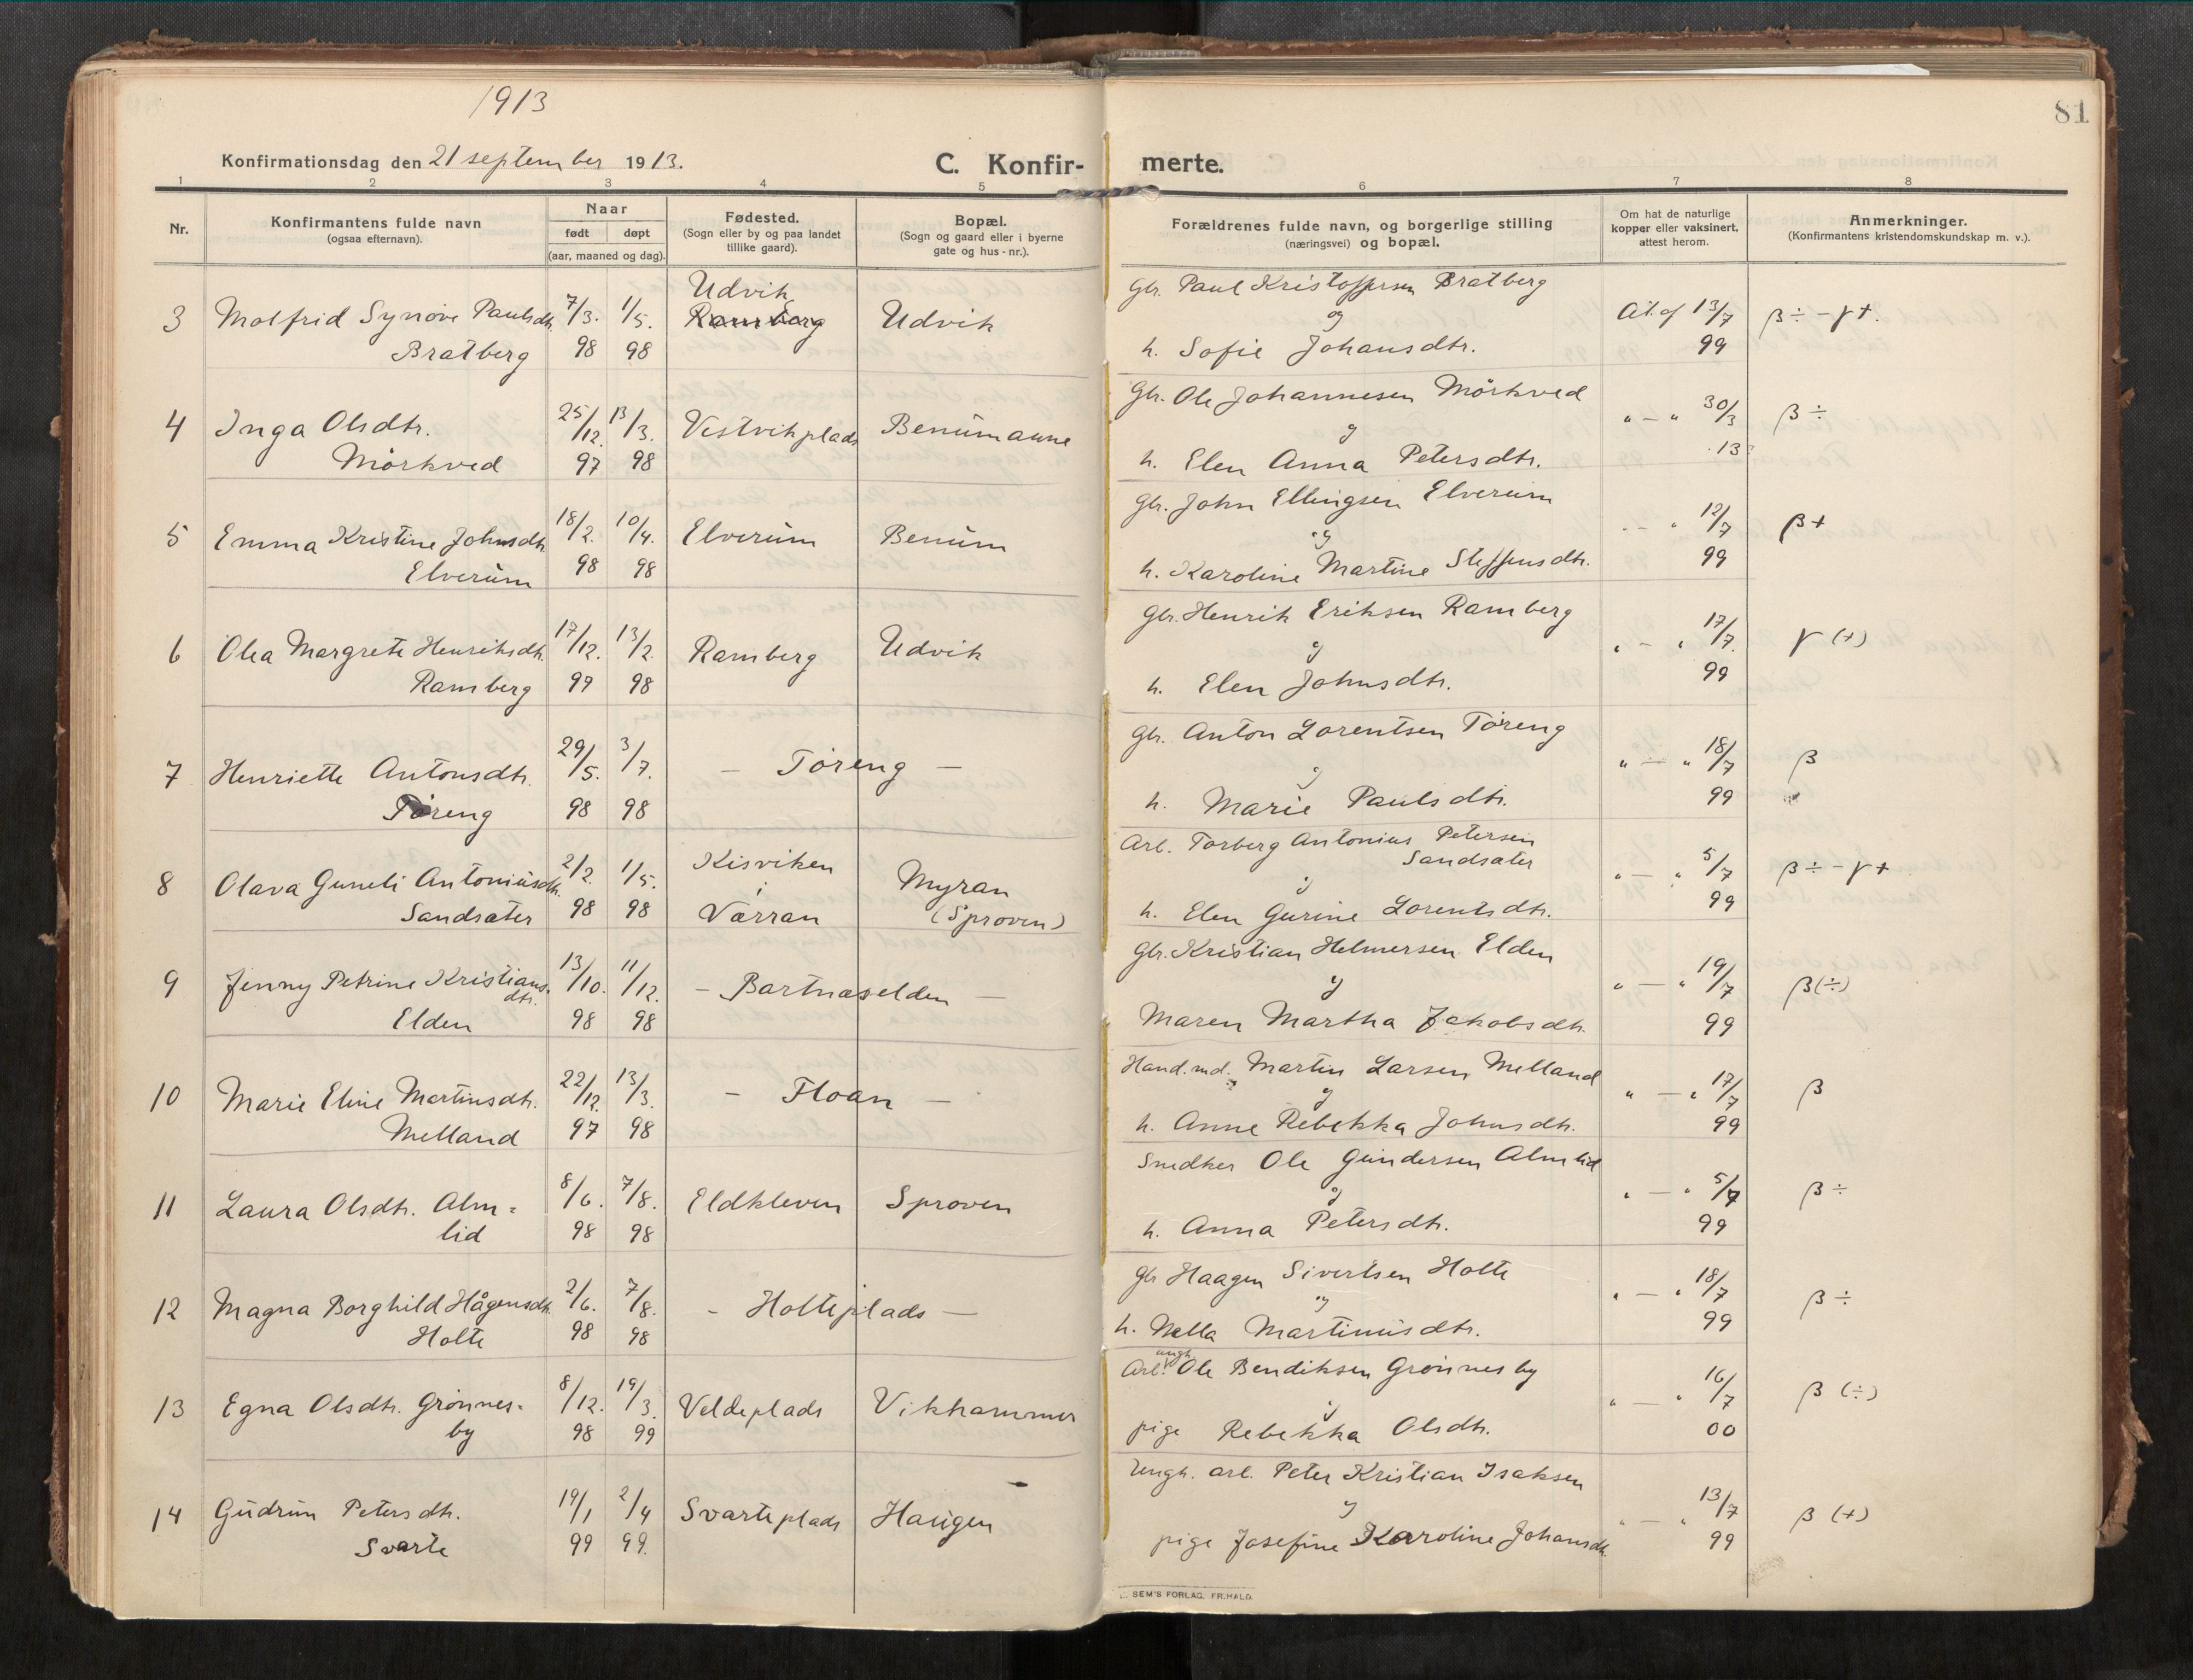 1913
81
Konfirmationsdag den 21 september 1913.
C. Konfirmerte.
1 2 3 4 5 6 7 8
Nr.
Konfirmantens fulde navn
(ogsaa efternavn).
Naar
født døpt
(aar, maaned og dag).
Fødested.
(Sogn eller by og paa landet
tillike gaard).
Bopæl.
(Sogn og gaard eller i byerne
gate og hus-nr.).
Forældrenes fulde navn, og borgerlige stilling
(næringsvei) og bopæl.
Om hat de naturlige
kopper eller vaksinert,
attest herom.
Anmerkninger.
(Konfirmantens kristendomskundskap m. v.).
3 Molfrid Synöve Paulsdtr. 7/3. 1/5. Udvik Ramberg Udvik
Bratberg 98 98
Gbr. Paul Kristoffersen Bratberg
og
h. Sofie Johansdtr.
At. af 13/7 99 β÷-γ+.
4 Inga Olsdtr. 25/12. 13/3. Vestvikplads Benümaune
Mörkved 97 98
Gbr. Ole Johannesen Mörkved
og
h. Elen Anna Petersdtr.
" — " 30/3 13 β÷
5 Emma Kristine Johnsdtr. 18/2. 10/4. Elverüm Benüm
Elverüm 98 98
Gbr. John Ellingsen Elverüm
og
h. Karoline Martine Steffensdtr.
" — " 12/7 99 β+
6 Olea Margrete Henriksdtr. 17/12. 13/2. Ramberg Udvik
Ramberg 97 98
Gbr. Henrik Eriksen Ramberg
og
h. Elen Johnsdtr.
" — " 17/7. 99 γ(+)
7 Henriette Antonsdtr. 29/5. 3/7. — Töreng —
Töreng 98 98
Gbr. Anton Lorentsen Töreng
og
h. Marie Paulsdtr.
" — " 18/7 99 β
8 Olava Guneli Antoniüsdtr. 2/2. 1/5. Kisviken i Værran Myran (Sproven)
Sandsæter 98 98
Arb. Torberg Antonius Petersen
Sandsæter
og
h. Elen Gurine Lorentsdtr.
" — " 5/7 99 β÷-γ+
9 Jenny Petrine Kristians-
dtr. 13/10. 11/12. — Bartnaselden —
Elden 98 98
Gbr. Kristian Helmersen Elden
og
Maren Martha Jakobsdtr.
" — " 19/7 99 β(÷)
10 Marie Eline Martinsdtr. 22/12. 13/3. — Floan —
Melland 97 98
Hand.md. Martin Larsen Melland
og
h. Anne Rebekka Johnsdtr.
" — " 17/7 99 β
11 Laura Olsdtr. Alm- 8/6. 7/8. Eldkleven Sproven
lid 98 98
Snedker Ole Gündersen Almlid
og
h. Anna Petersdtr.
" — " 5/7 99 β÷
12 Magna Borghild Hågensdtr. 2/6. 7/8. — Holteplads —
Holte 98 98
Gbr Haagen Sivertsen Holte
og
h. Nella Martinüsdtr.
" — " 18/7 99 β÷
13 Egna Olsdtr. Grönnes- 8/12. 19/3. Veldeplads Vikhammer
by 98 99
Arb. ungk. Ole Bendiksen Grönnesby
og
pige Rebekka Olsdtr.
" — " 16/7 00 β (÷)
14 Güdrün Petersdtr. 19/1 2/4 Svarteplads Haugen
Svarte 99 99.
Ungk. arb. Peter Kristian Isaksen
og
pige Josefine Karoline Johansdtr.
" — " 13/7 99 β (+)
SEM'S FORLAG, FR.HALD.